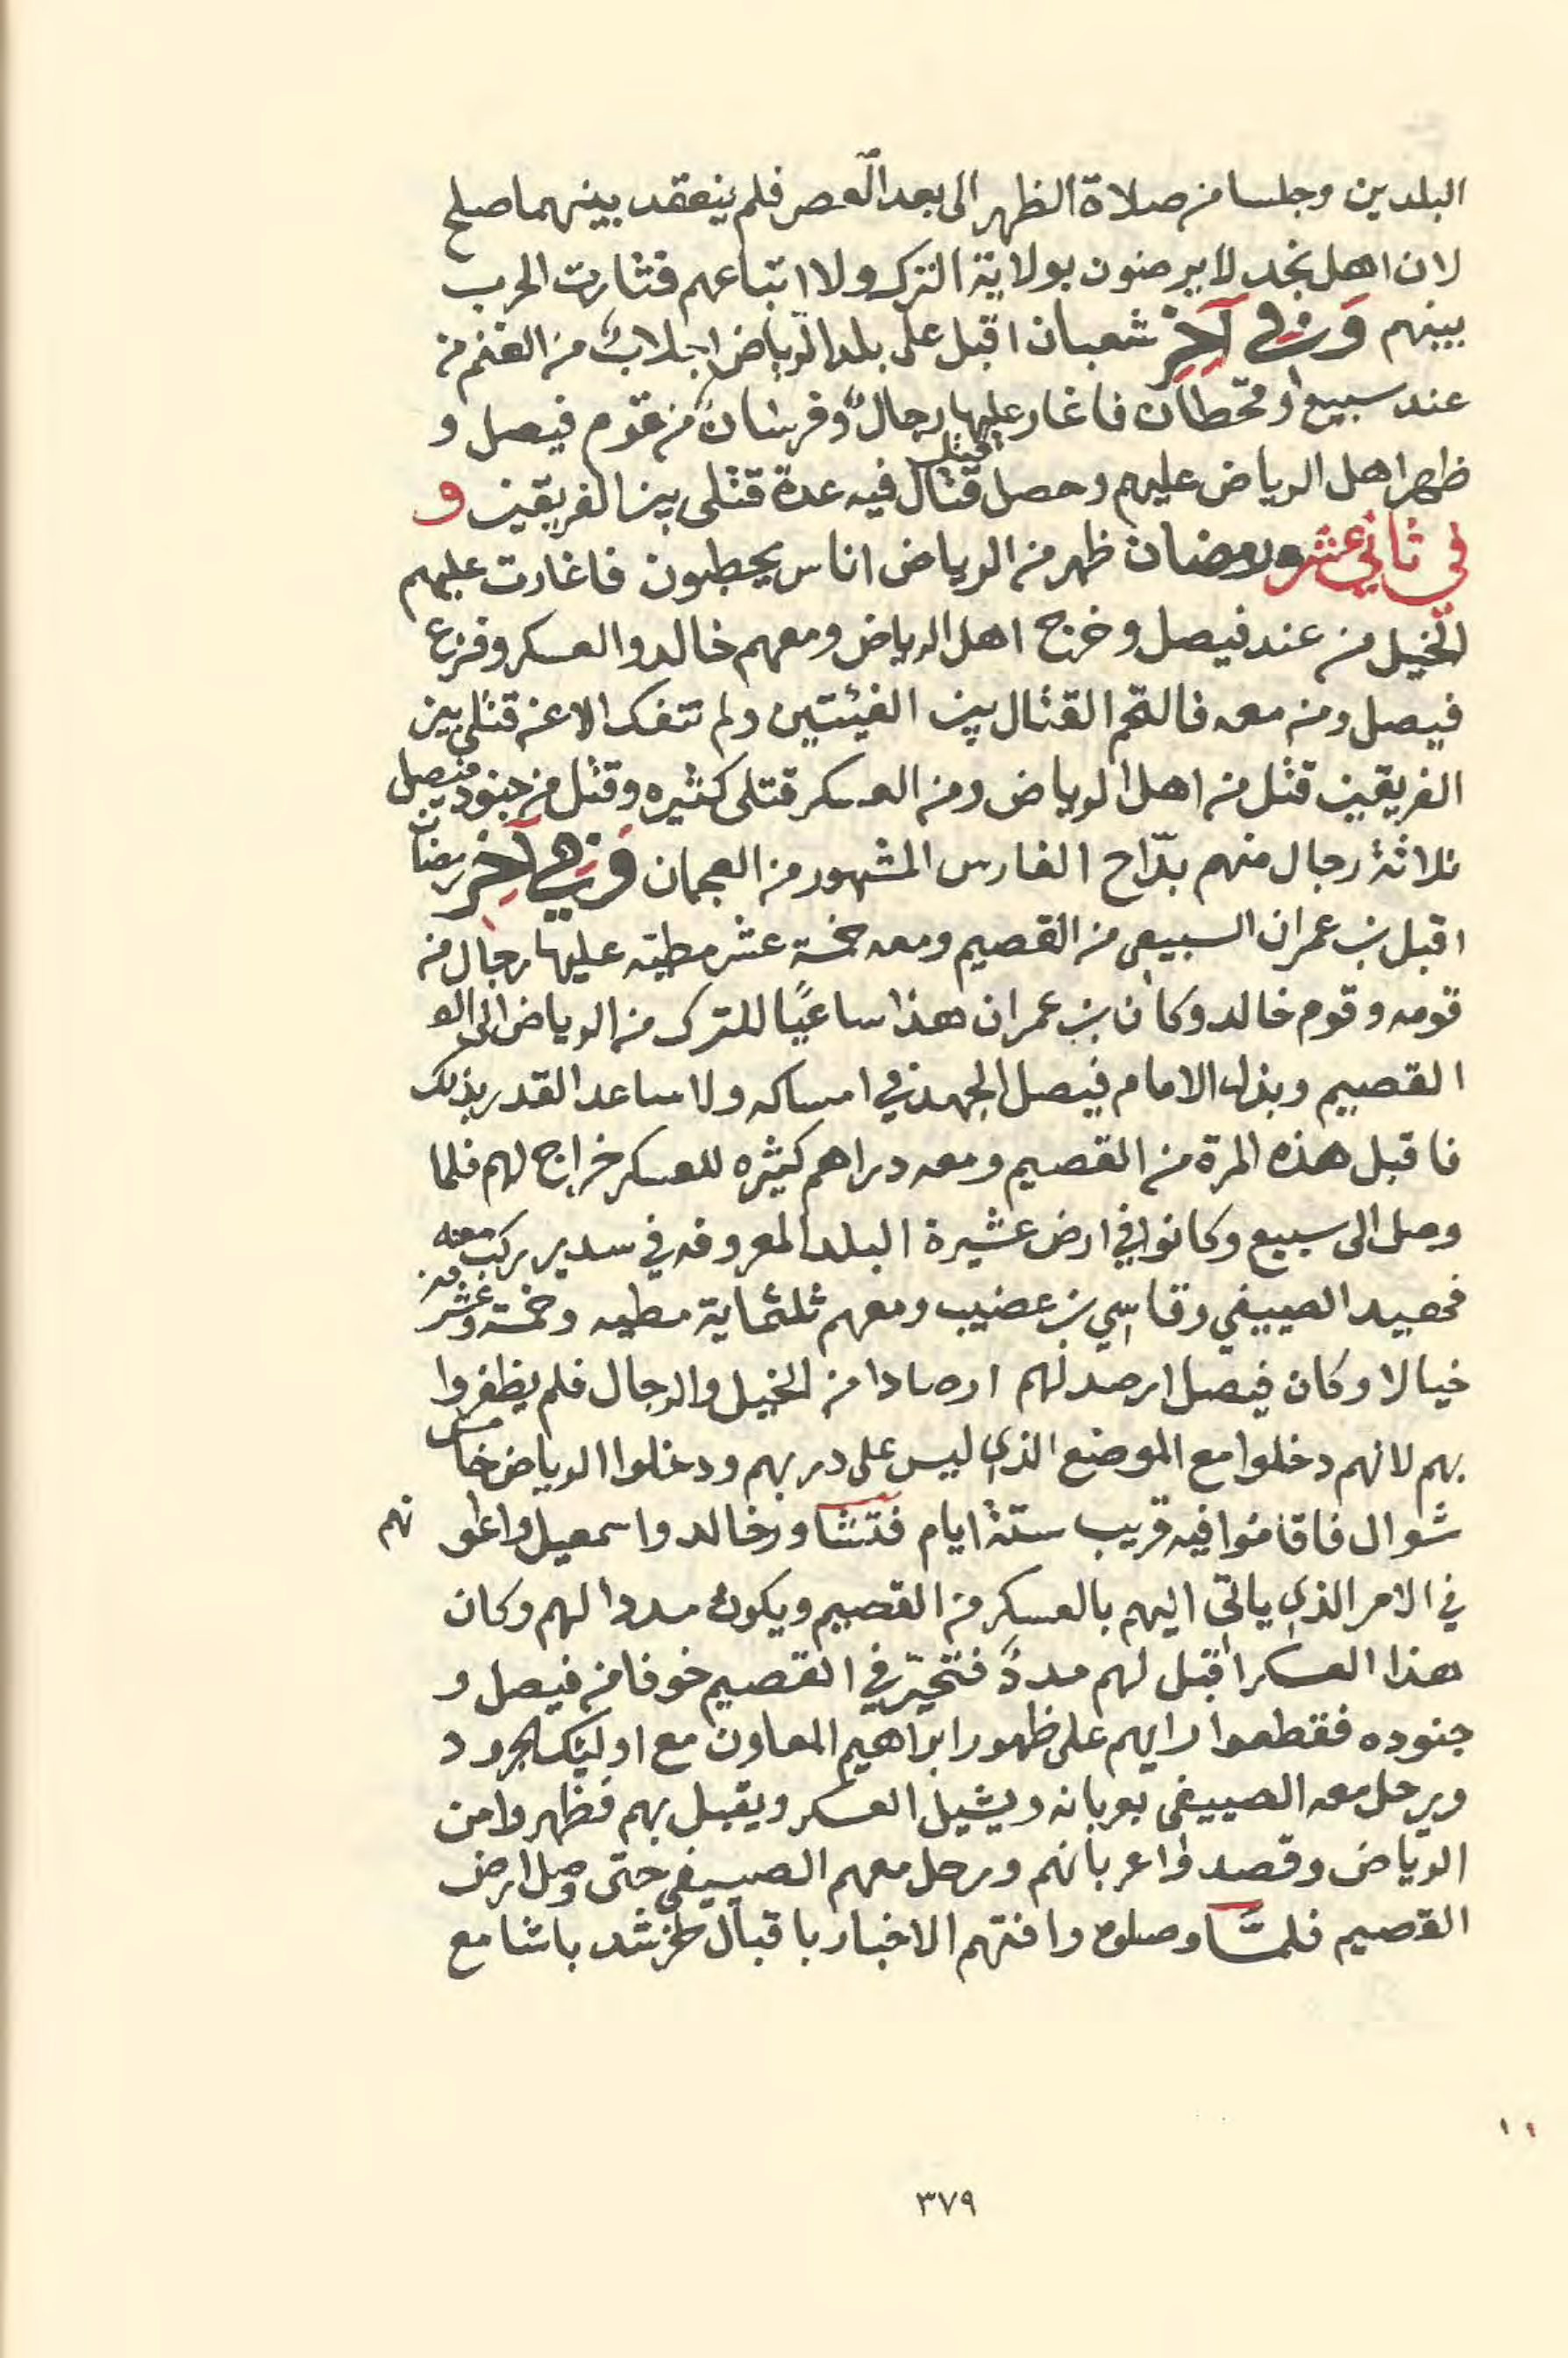 البلدين وجلسا من صلاة الظهر الى بعد العصر فلم ينعقد بينهما صلح
لان اهل نجد لا يرضون بولاية الترك ولا اتباعهم فثارت الحرب
بينهم وَفي آخِرِ شعبان اقبل على بلد الرياض اجلابٌ من الغنم من
عند سبيع او قحطان فاغار عليها رجالٌ وفرسانٌ من قوم فيصل و
ظهر اهل الرياض عليهم وحصل قتال قتل فيه عدة قتلى بين الفريقين و
في ثاني عشر رمضان ظهر من الرياض اناس يحطبون فاغارت عليهم
الخيل من عند فيصل وخرج اهل الرياض ومعهم خالد والعسكر وفزع
فيصل ومن معه فالتحم القتال بين الفيئتين ولم تنفك الا عن قتلى بين
الفريقين قتل من اهل الرياض ومن العسكر قتلى كثيره وقتل من جنود فيصل
ثلاثة رجال منهم بدّاح الفارس المشهور من العجمان وَفي آخِرِ رمضان
اقبل بن عمران السبيعي من القصيم ومعه خمسة عشر مطيّه عليها رجال من
قومه وقوم خالد وكان بن عمران هذا ساعيًا للترك من الرياض الى
القصيم وبذل الامام فيصل الجهد في امساكه ولا ساعد القدر بذلك
فاقبل هذه المرة من القصيم ومعه دراهم كثيره للعسكر خراج لهم فلما
وصل الى سبيع وكانوا في ارض عشيرة البلد المعروفه في سدير ركب معه
فحصيد الصييفي وقاسي بن عضيب ومعهم ثلثماية مطيه وخمسة وعشرين
خيالا وكان فيصل ارصد لهم ارصادا من الخيل والرجال فلم يظفروا
بهم لانهم دخلوا مع الموضع الذي ليس على دربهم ودخلوا الرياض خامس
شوال فاقاموا فيه قريب ستة ايام فتشاور خالد واسمعيل واعوانهم
في الامر الذي ياتي اليهم بالعسكر من القصيم ويكون مددا لهم وكان
هذا العسكر اقبل لهم مددً فتحيّر في القصيم خوفا من فيصل و
جنوده فقطعوا رايهم على ظهور ابراهيم المعاون مع اوليك الجرود
ويرحل معه الصييفي بعربانه ويشيل العسكر ويقبل بهم فظهروا من
الرياض وقصدوا عربانهم ورحل معهم الصييفي حتى وصل ارض
القصيم فلمّا وصلوه وافتهم الاخبار باقبال خرشد باشا مع
٣٧٩